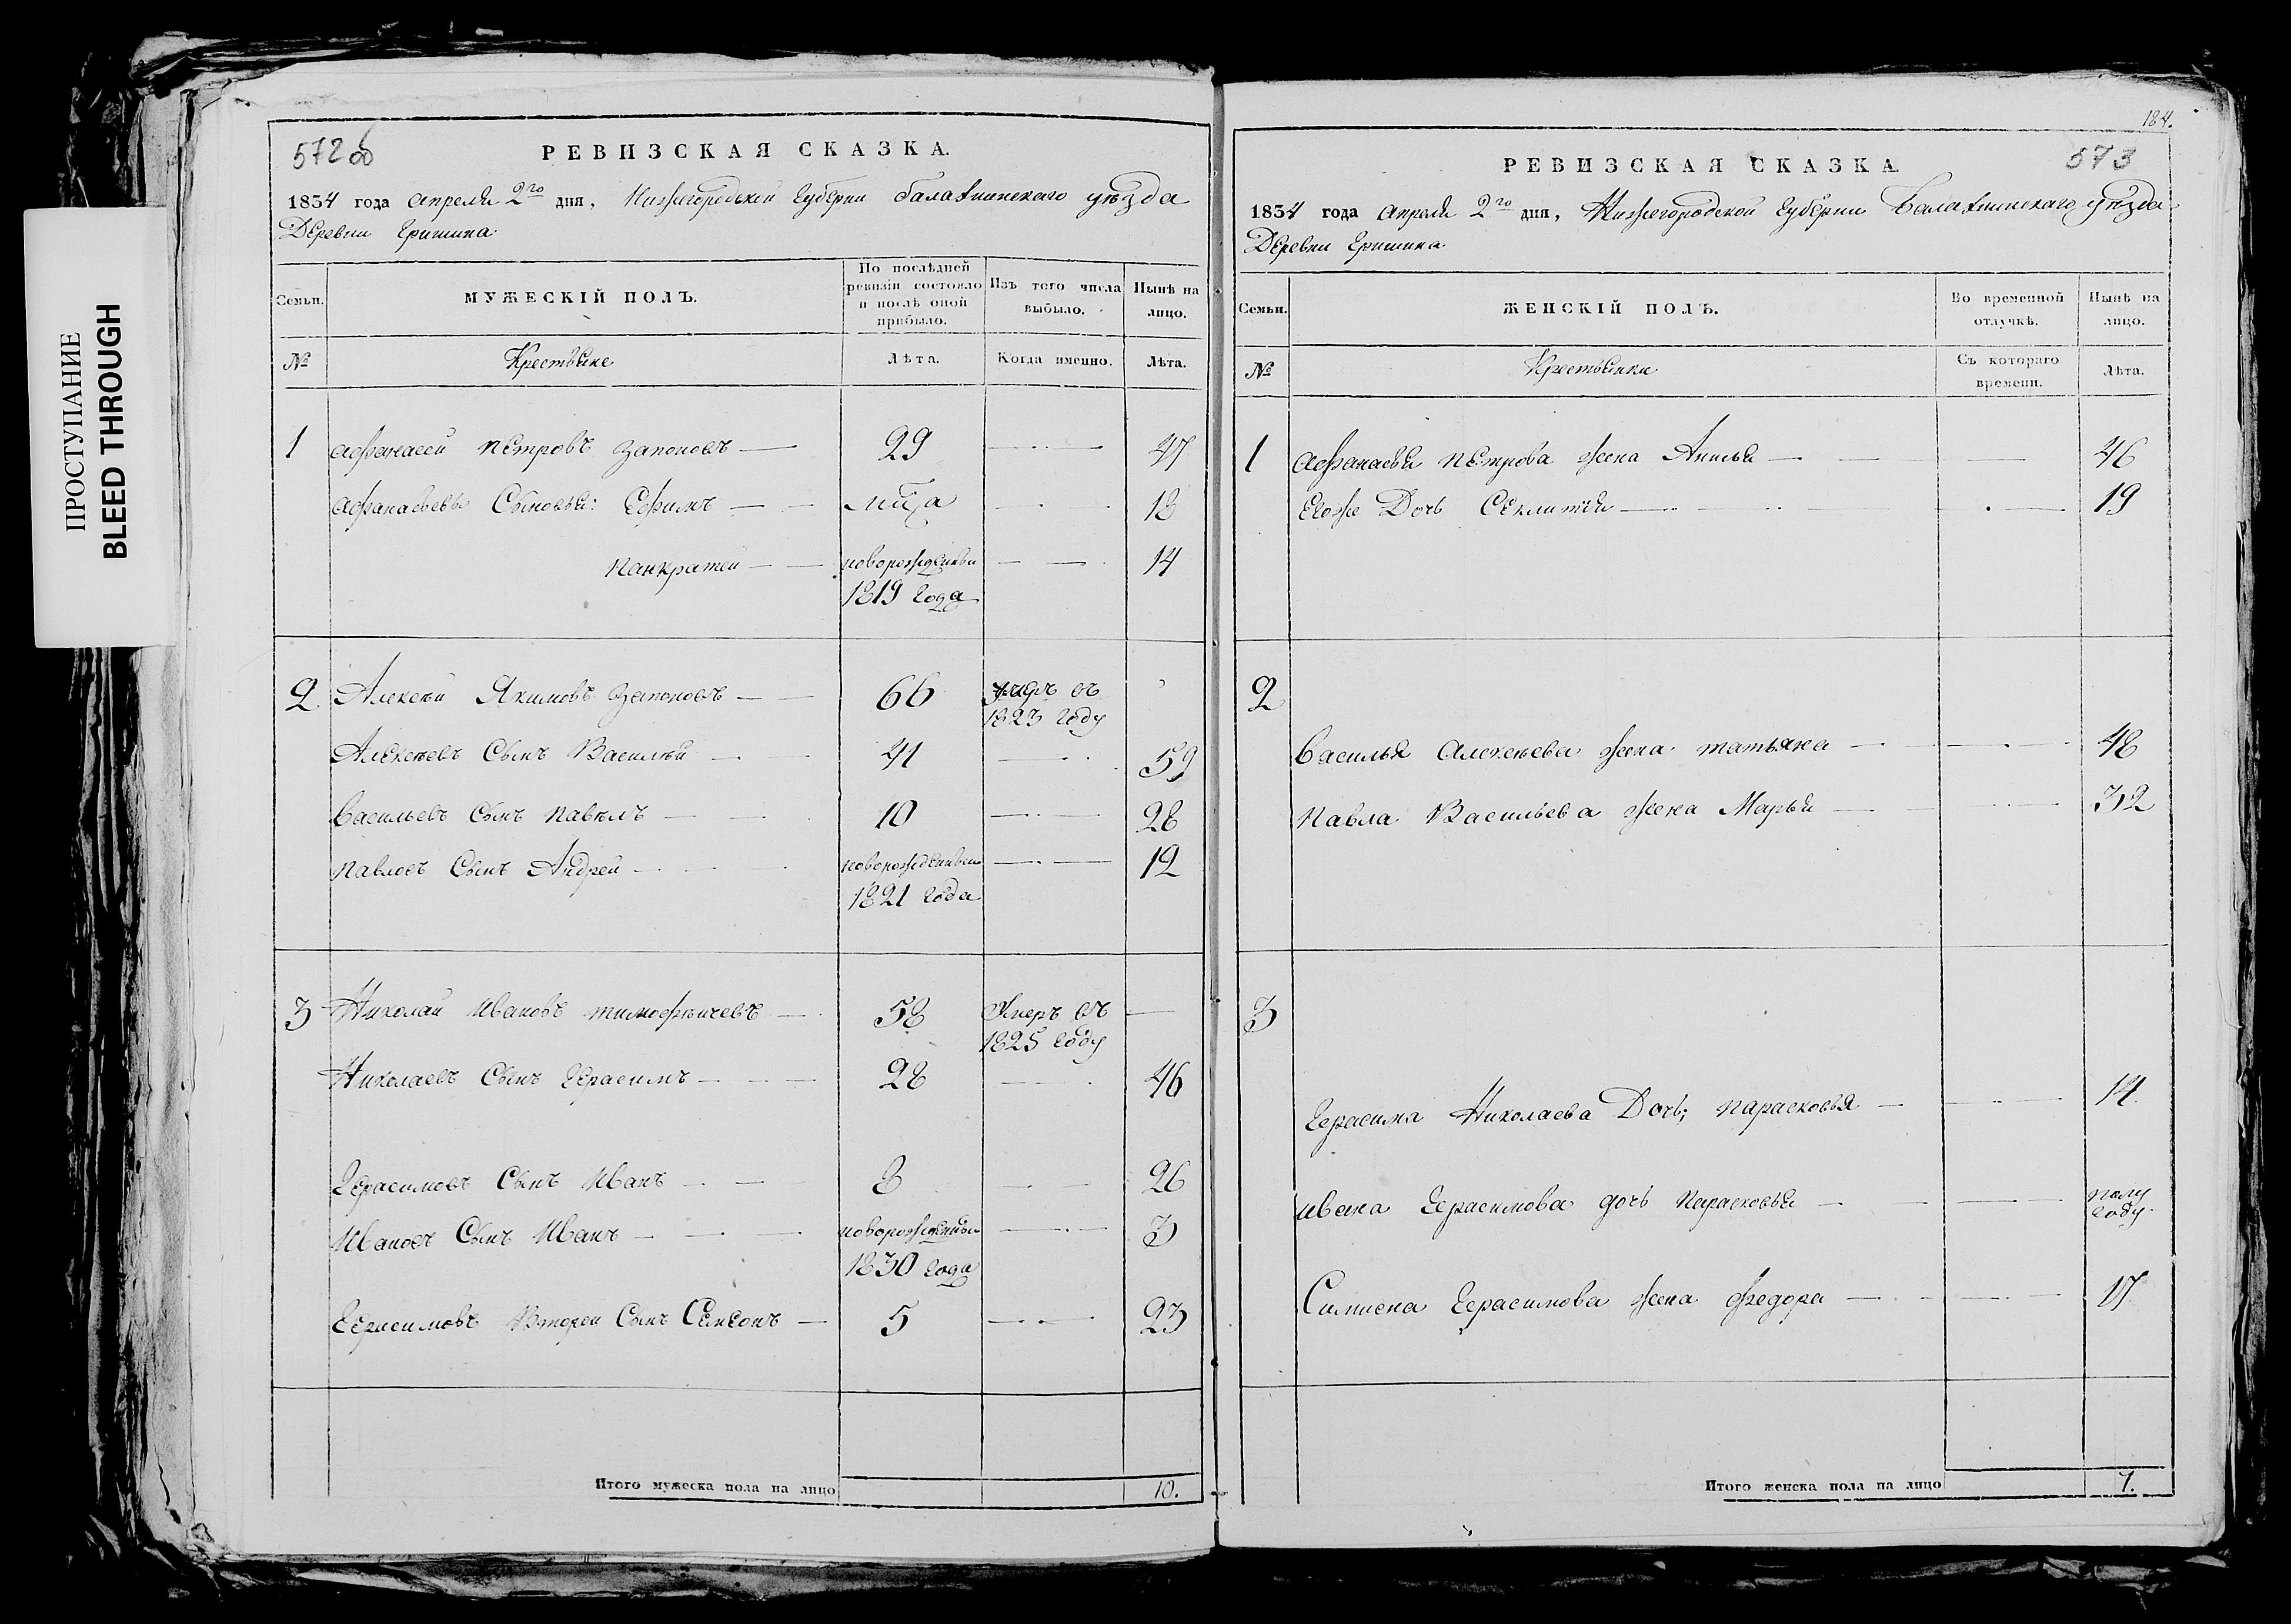 ПРОСТУПАНИЕ
BLEED THROUGH
572 об
РЕВИЗСКАЯ СКАЗКА.
1834 года апреля 2го дня, Нижегородской Губернии балахнинскаго уѣзда
Деревни Гришина
Семьи.
МУЖЕСКІЙ ПОЛЪ.
По послѣдней
ревизіи состояло
и послѣ оной
прибыло.
Изъ того числа
выбыло.
Нынѣ на
лицо.
№
Крестьяне
Лѣта.
Когда именно.
Лѣта.
1 Афанасей Петровъ Запоновъ — 29 — 47
Афанасьевы Сыновья: Ефимъ — — 18
Панкратей — — новорожденный — — 14
1819 года
2 Алексѣй Якимовъ Запоновъ — — 66 умеръ въ
1823 году
Алексѣевъ Сынъ Василѣй — 41 — 59
Васильевъ Сынъ Павѣлъ — 10 — — 28
Павловъ Сынъ Андрей — новорожденный — — 12
1821 года
3 Николай Ивановъ тимофѣичевъ — 58 Умеръ въ —
1825 году
Николаевъ Сынъ Герасимъ — — — 28 — 46
Герасимовъ Сынъ Иванъ — — 8 — 26
Ивановъ Сынъ Иванъ — — — новорожденный — — 3
1830 года
Герасимовъ Второй Сынъ Семѣонъ — 5 — — 23
Итого мужеска пола на лицо 10.
184.
573
РЕВИЗСКАЯ СКАЗКА
1834 года апреля 2го дня, Нижегородской Губернии Балахнинскаго уѣзда
Деревни Гришина
Семьи.
ЖЕНСКІЙ ПОЛЪ.
Во временной
отлучкѣ.
Нынѣ на
лицо.
№
Крестьянки
Съ котораго
времени.
Лѣта.
1 Афанасья Петрова жена Анисья — — — 46
Егоже Дочь Секлитея — — — 19
2
Василья Алексѣева жена татьяна — — — 48
Павла Васильева жена Марья — — — 32
3
Герасима Николаева Дочь; парасковья — — — 14
Ивана Герасимова дочь парасковья — — — полу
году
Симиона Герасимова жена Федора — — — 17
Итого женска пола на лицо 7.